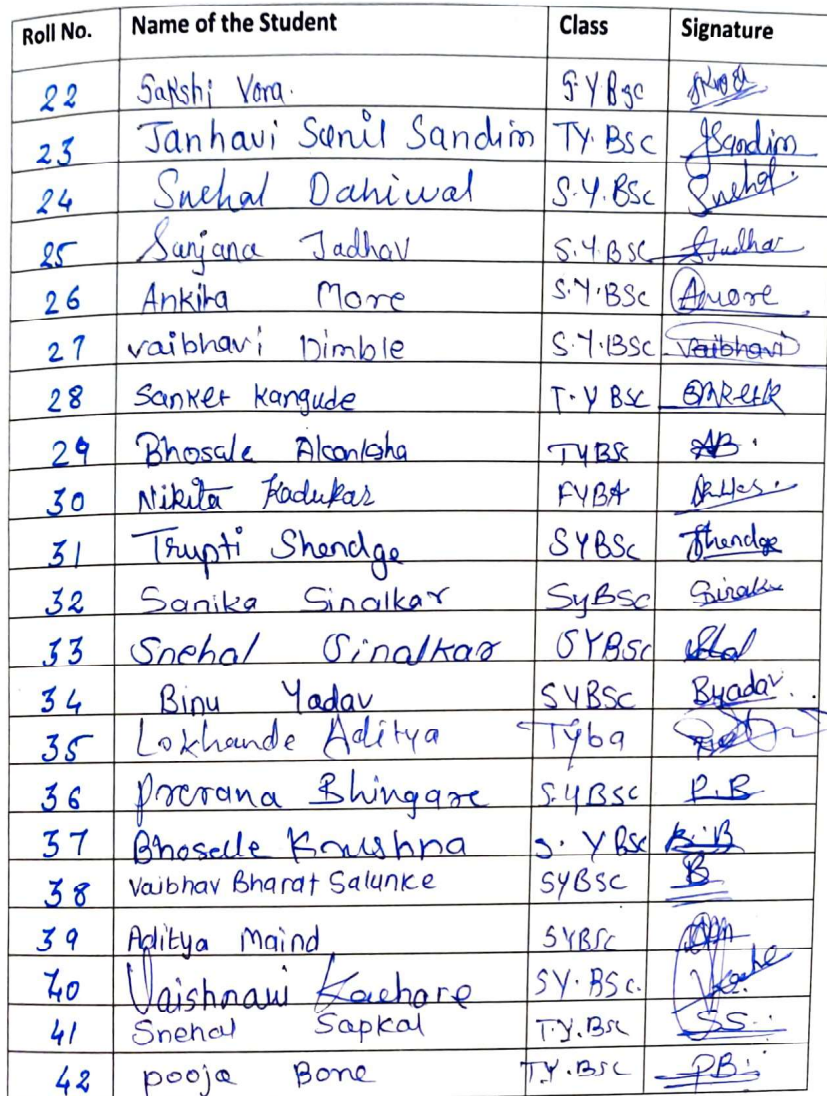 Roll No. Name of the Student Class Signature
22 Sakshi Vora. S.Y Bsc
23 Janhavi Sunil Sandim TY. BSC JSandim
24 Snehal Dahiwal S.Y.BSc Snehal.
25 Sanjana Jadhav S.Y.BSC SJadhav
26 Ankita More S.Y.BSc Amore
27 vaibhavi Dimble S.Y.BSc Vaibhavi
28 Sanket Kangude T.Y BSc
29 Bhosale TYBSc AB.
30 Nikita Kadukar FYBA
31 Trupti Shendge SYBSc Shendge
32 Sanika Sinalkar SyBSc
33 Snehal Sinalkar SYBSc
34 Binu Yadav SYBSc Byadav.
35 Lokhande Aditya Tyba
36 Prerana Bhingare S.YBSc P.B
37 Bhoselle Krushna S. YBSc K.B
38 Vaibhav Bharat Salunke SYBSC B
39 Aditya Maind SYBSc
40 Vaishnavi Kachare SY.BSc.
41 Snehal Sapkal T.Y.BSc SS.
42 pooja Bone T.Y.BSc PB.